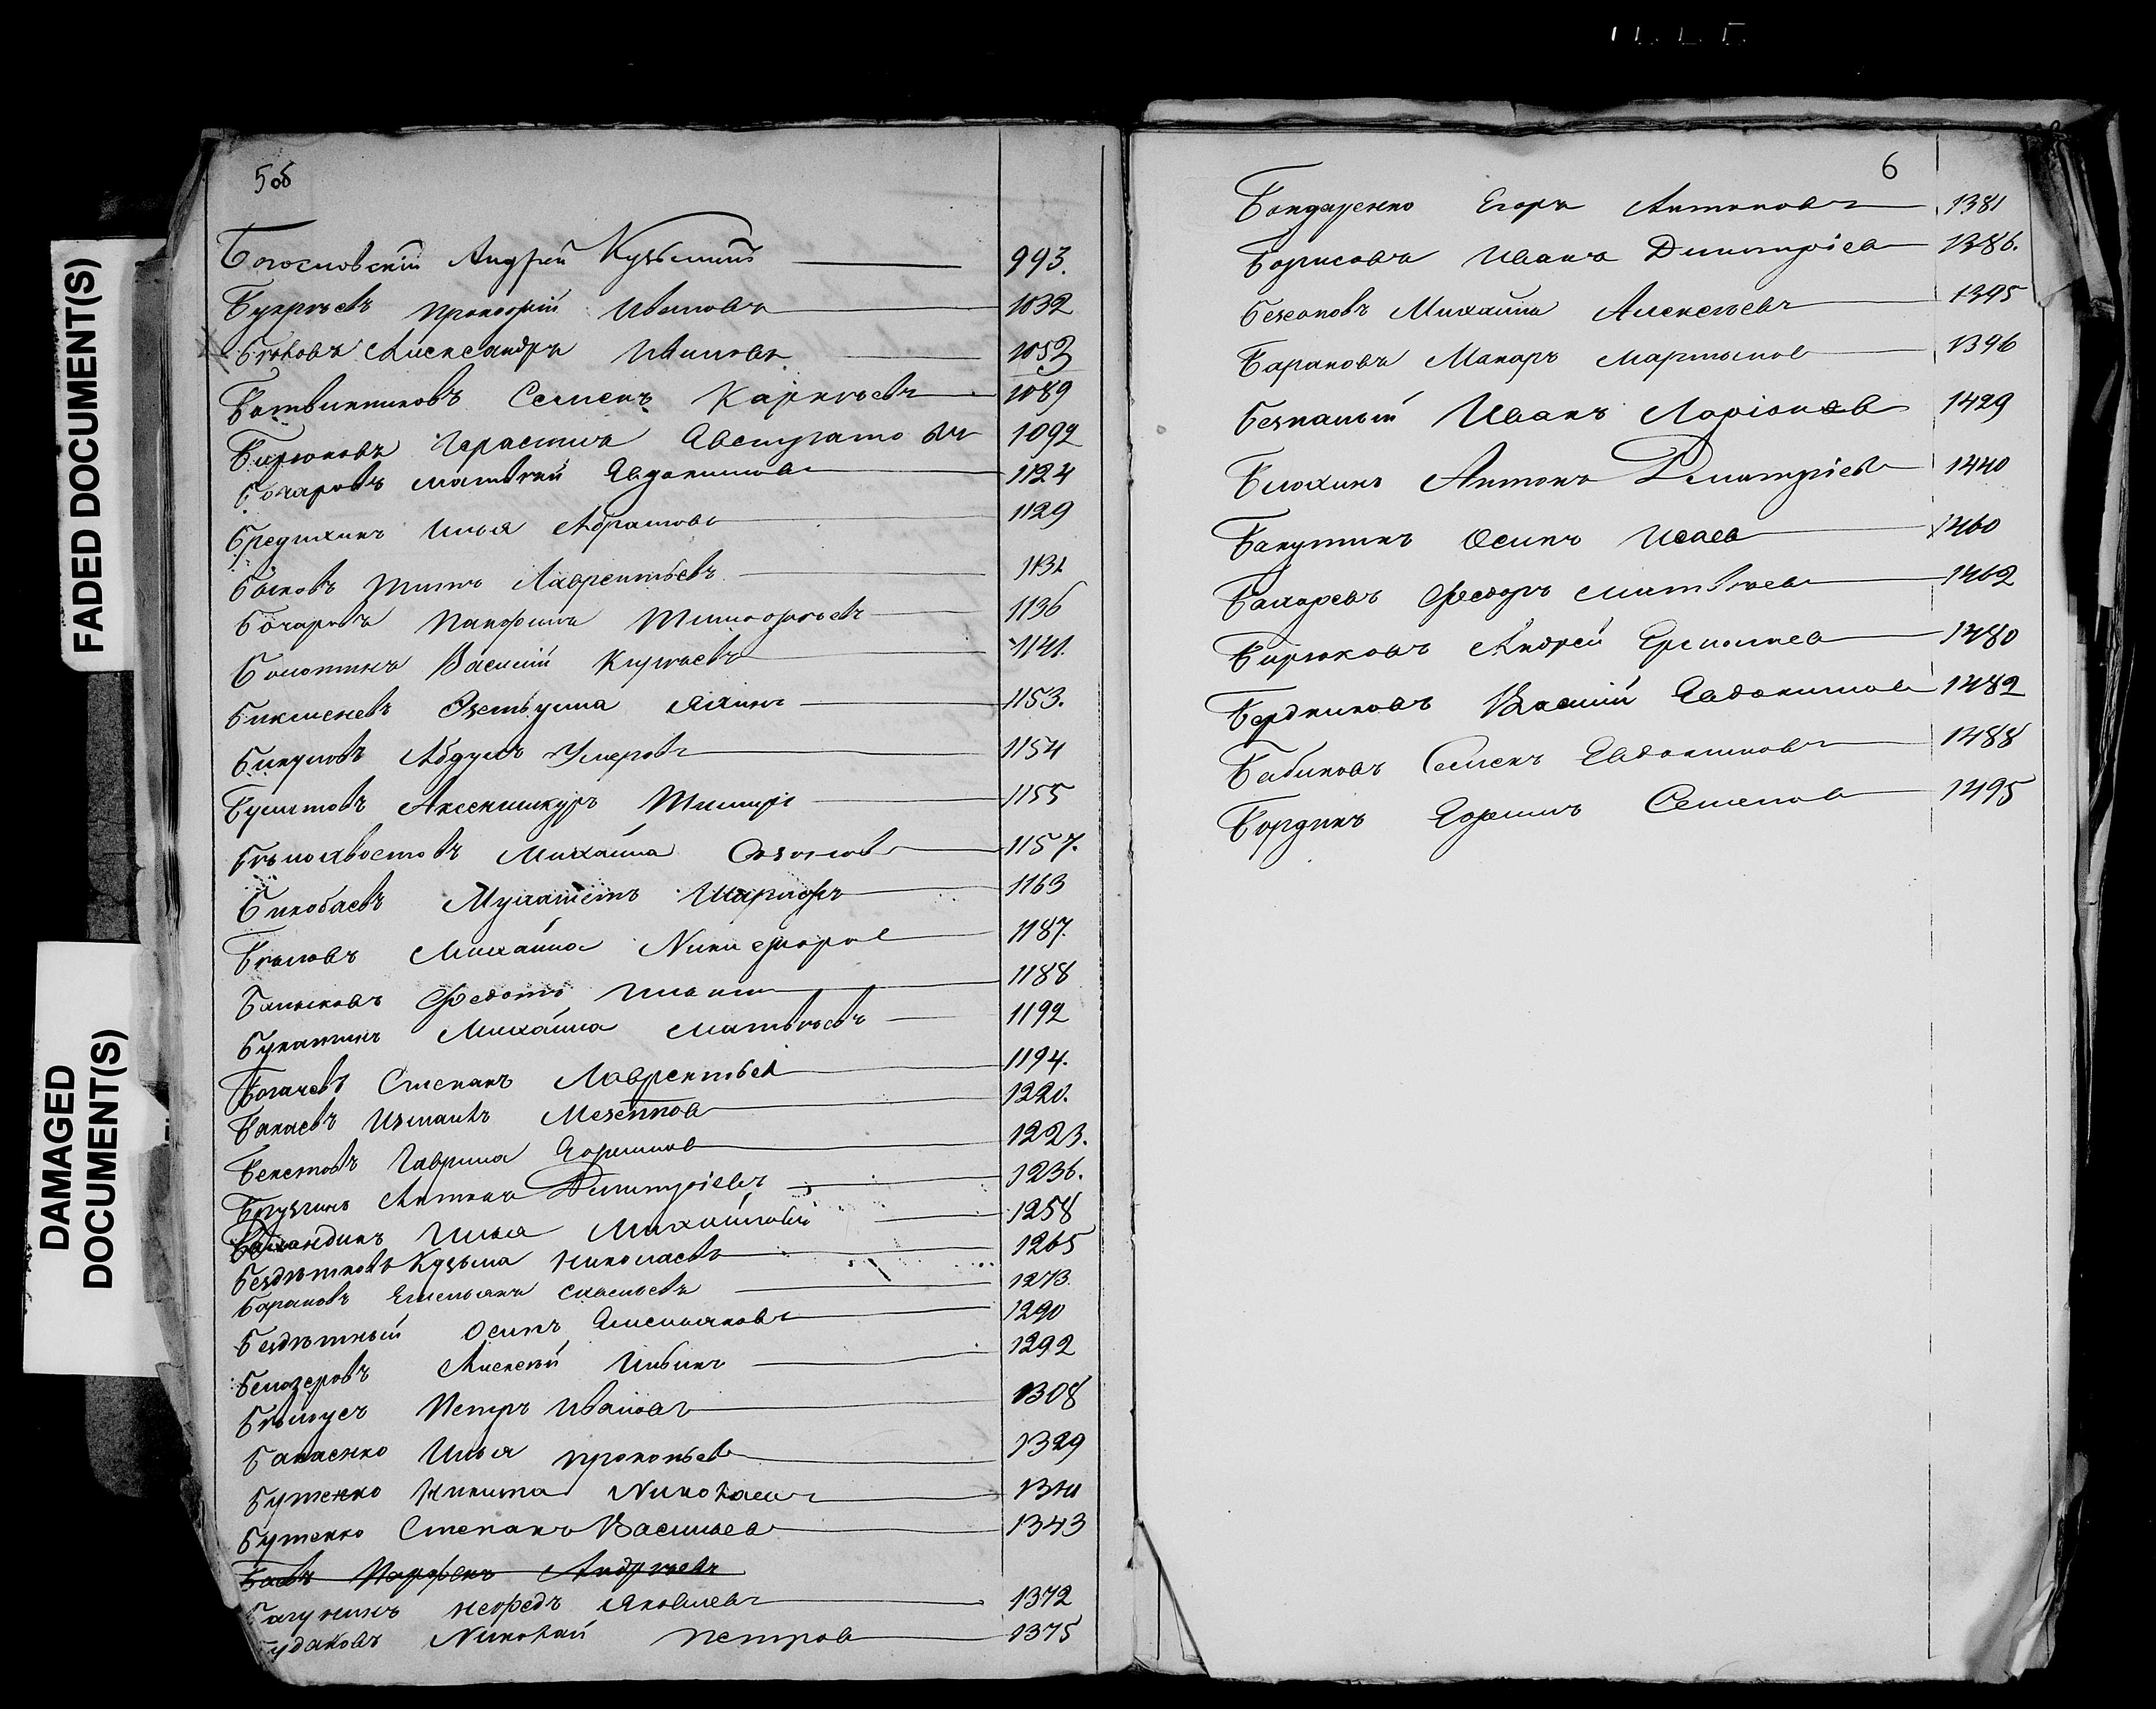 FADED DOCUMENT(S)
DAMAGED
DOCUMENT(S)
5об
Богословскій Андрей Кузьминъ 993.
Бугрѣевъ Прокофій Ивановъ 1032
Бѣковъ Александръ Ивановъ 1053
Ботвинниковъ Семенъ Карпѣевъ 1089
Бирюковъ Герасимъ Австратовъ 1092
Бочаровъ Матвѣй Евдокимовъ 1124
Бредихинъ Илья Абрамовъ 1129
Быковъ Титъ Лаврентьевъ 1131
Бочаровъ Панфилъ Тимофѣевъ 1136
Болотинъ Василій Киреевъ 1141.
Бикменевъ Яхинъ 1153.
Бикуловъ Абдулъ Умеровъ 1154
Тимиръ 1155
Бѣлохвостовъ Михайла Созонов 1157.
Бикобаевъ Мухаметъ Шарифъ 1163
Бѣловъ Михайла Никифоров 1187
Балыковъ Федотъ 1188
Букатинъ Михайла Матвѣевъ 1192
Богачевъ Степанъ Лаврентьев 1194.
Бакаевъ Измаилъ 1220.
Бекетовъ Гаврила Ефимов 1223.
Брузгинъ Антонъ Димитріевъ 1236.
Баландинъ Илья Михайловъ 1258
Бездѣтковъ Кузьма Николаевъ 1265
Барановъ Емельянъ Савельевъ 1273
Бездѣтный Осипъ Емельяновъ 1290
Белозеровъ Алексѣй 1292
Бѣлоусъ Петръ Ивановъ 1308
Бакаенко Илья Прокопьев 1329
Бутенко Никита Николаевъ
Бутенко Степанъ Васильев 1343
Парфенъ Андреевъ
Багунинъ Нефедъ Яковлевъ 1372
Будаковъ Николай Петров 1375
6
Бондаренко Егоръ Антоновъ 1381
Борисовъ Иванъ Димитріев 1386.
Безсоновъ Михайла Алексѣевъ 1395
Барановъ Макаръ Мартынов 1396
Безпалый Иванъ Ларіонов 1429
Блохинъ Антонъ Димитріев 1440
Бакутинъ Осипъ Исаев 1460
Бахаревъ Федоръ Матвѣев 1462
Бирюковъ Андрей Ермолаев 1480
Бердниковъ Василій Евдокимов 1482
Бабиковъ Семенъ Евдокимовъ 1488
Бординъ Ефимъ Семенов 1495